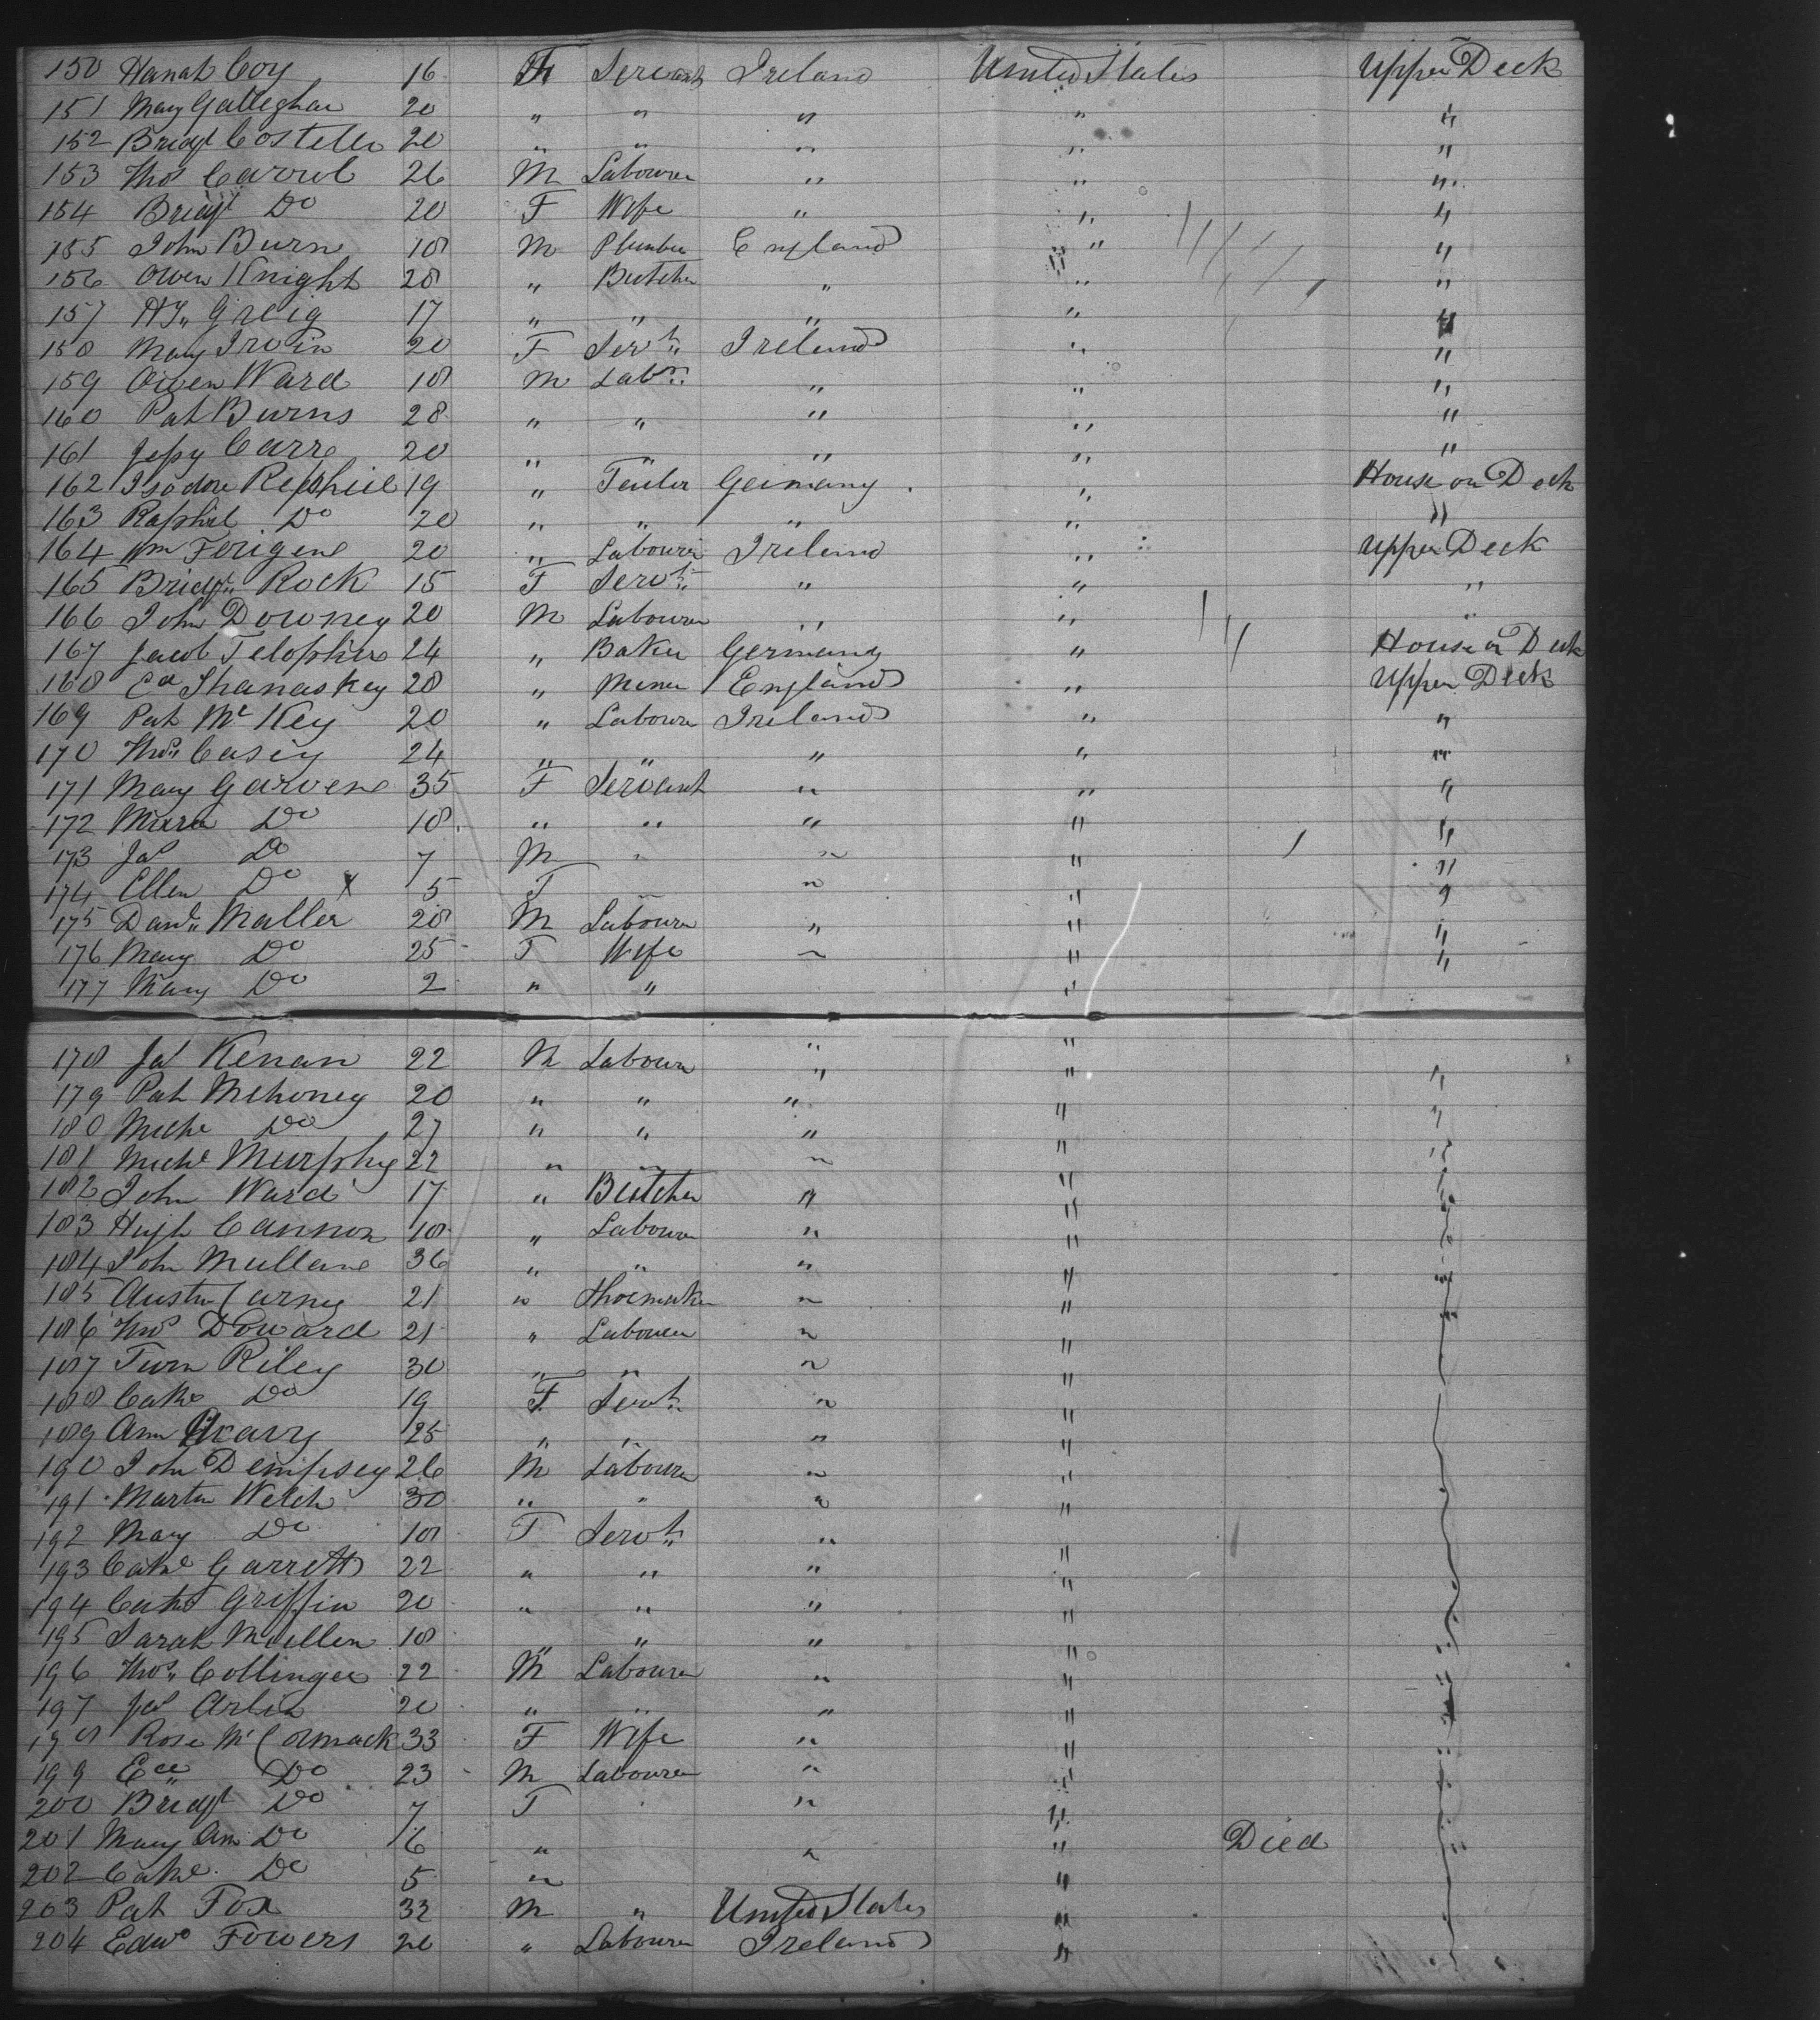 150 Hanah Coy 16 F Servant Ireland United States Upper Deck
151 Mary Galleghan 20 " " " " "
152 Bridgt Costello 20 " " " " "
153 Thos Carrol 26 M Labourer " " "
154 Bridgt Do 20 F Wife " " "
155 John Burn 18 M Plumber England " "
156 Owen Knight 28 " Butcher " " "
157 Greig 17 " " " " "
158 Mary Irvin 20 F Servt Ireland " "
159 Owen Ward 18 M Labr " " "
160 Pat Burns 28 " " " " "
161 Carre 20 " " " " "
162 Isodore Rephiel 19 " Germany " House on Deck
163 Raphiel Do 20 " " " " "
164 Wm Ferigene 20 " Labourer Ireland " Upper Deck
165 Bridgt Rock 15 F Servt " " "
166 John Downey 20 M Labourer " " "
167 Jacob 24 " Baker Germany " House on Deck
168 Shanaskey 28 " Miner England " Upper Deck
169 Pat McKey 20 " Labourer Ireland " "
170 Thos Casey 24 " " " " "
171 Mary Garvene 35 F Servant " " "
172 Do 18 " " " " "
173 Jas Do 7 M " " " "
174 Ellen Do X 5 F " " "
175 Danl Maller 28 M Labourer " " "
176 Mary Do 25 F Wife " " "
177 Mary Do 2 " " "
178 Jas Kenan 22 M Labourer " " "
179 Pat Mehoney 20 " " " " "
180 Miche Do 27 " " " " "
181 Michl Murphy 22 " " " " "
182 John Ward 17 " Butcher " " "
183 Hugh Cannon 18 " Labourer " " "
184 John Mullane 36 " " " " "
185 Austin Carney 21 " Shoemaker " " "
186 Thos Doward 21 " Labourer " "
187 Riley 30 " " " "
188 Cathe Do 19 F Servt " "
189 Ann 25 " " " "
190 John Dempsey 26 M Labourer " "
191 Martin Welch 30 " " " "
192 Mary Do 18 F Servt "
193 Cathe Garrett 22 " " " "
194 Cathe Griffin 20 " " " "
195 Sarah Mullen 18 " " " "
196 Thos Collinger 22 M Labourer " "
197 Jas Arlis 20 " " " "
198 Rose McCormack 33 F Wife " "
199 Do 23 M Labourer " "
200 Bridgt Do 7 F " "
201 Mary Ann Do 6 " " " Died
202 Cathe Do 5 " "
203 Pat Fox 32 M " United States "
204 Edwd Fowers 20 " Labourer Ireland "